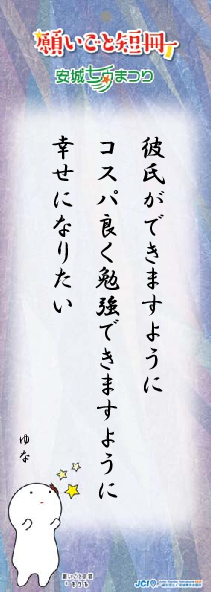 願いごと短冊
安城七夕まつり
彼氏ができますように
コスパ良く勉強できますように
幸せになりたい
ゆな
願いごと短冊
JCI